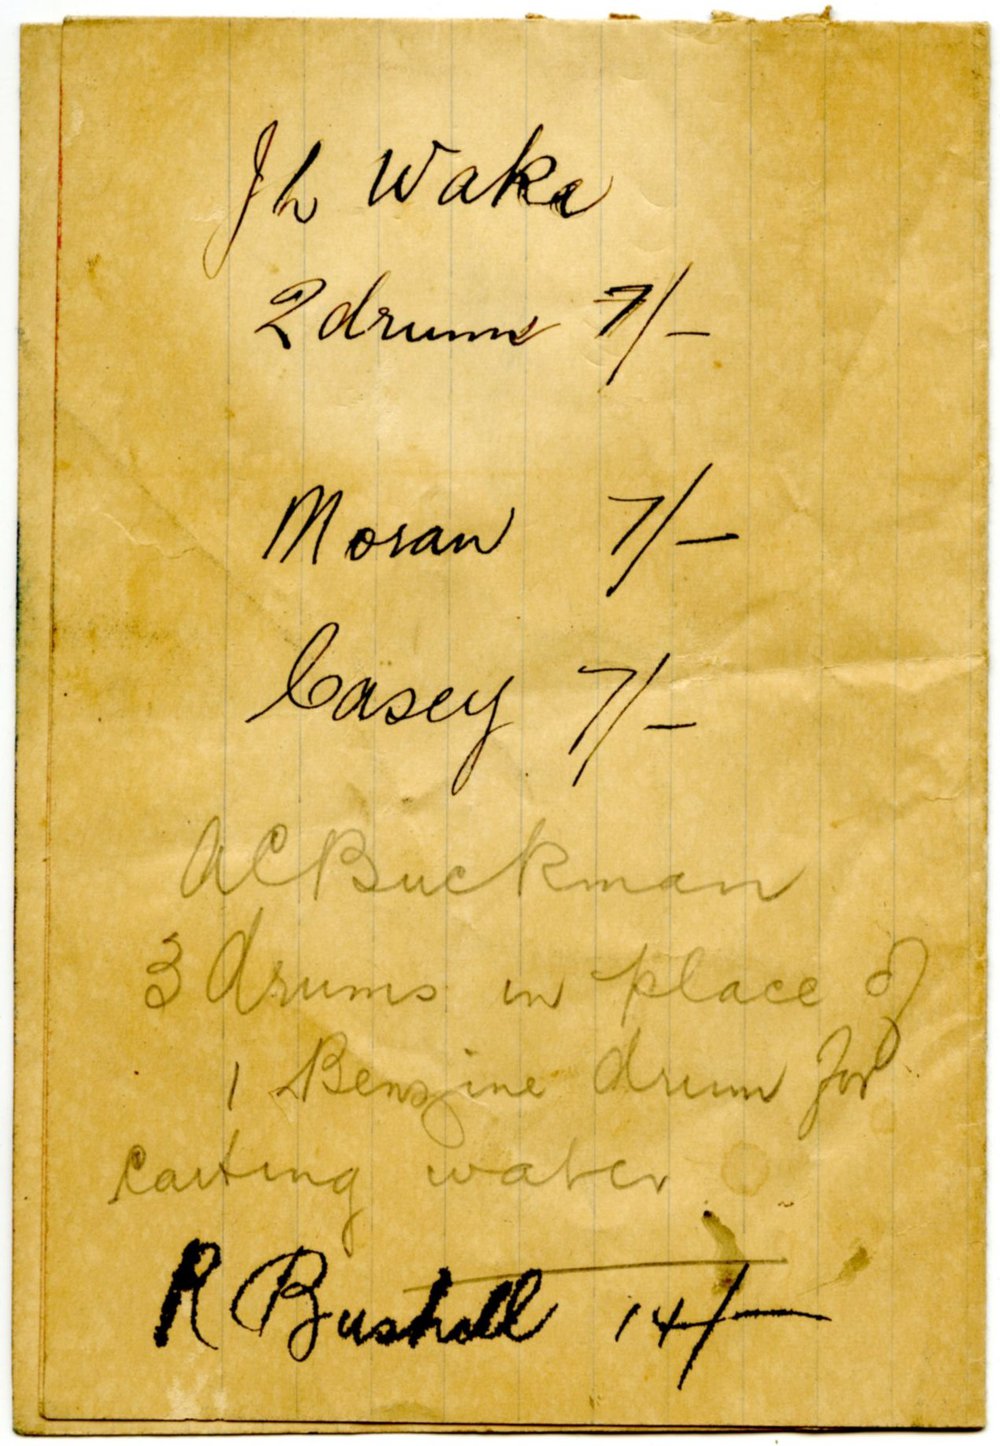 Jh Wake
2 drums 7/-
Moran 7/-
Casey 7/-
A C Buckman
3 drums in place of
1 Benzine drum for
carting water
R Bushell 14/-